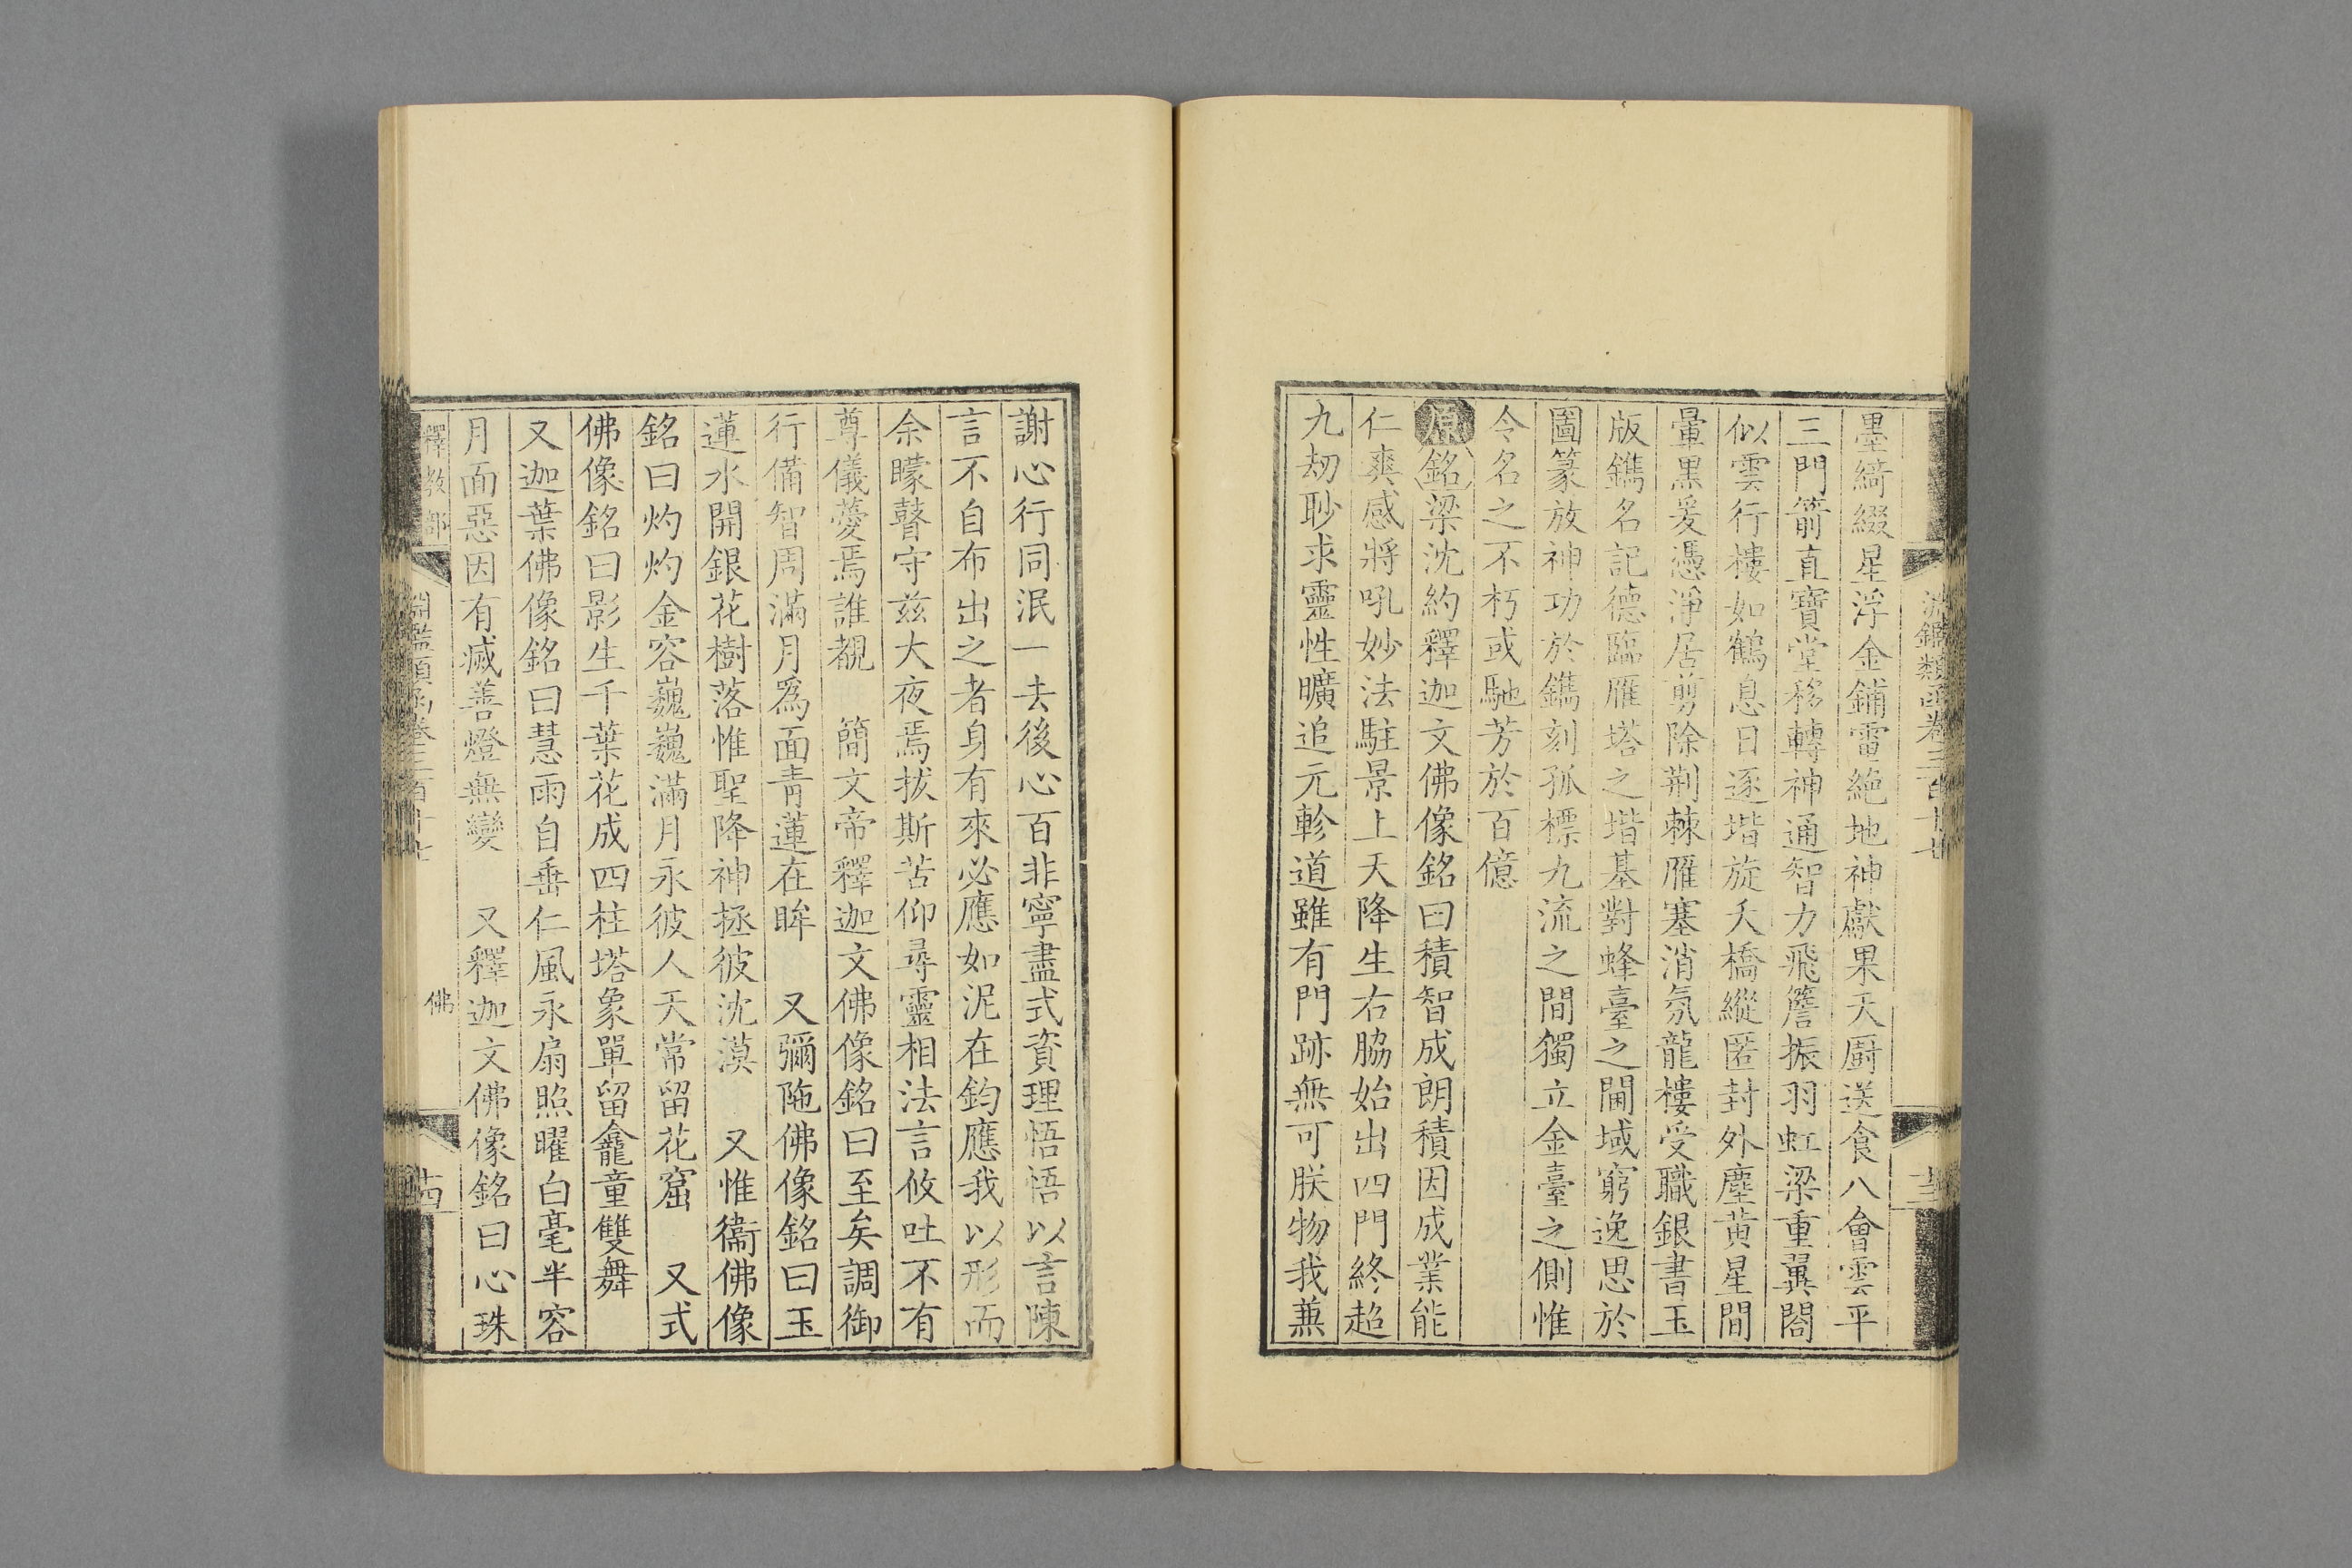 墨綺綴星浮金鋪雷繞地神獻果天廚送食八會雲平
三門箭直寶堂移轉神通智力飛簷振羽虹梁重翼閣
似雲行樓如鶴息日逐堦旋夭橋縱匿封外塵黃星間
暈黑爰憑淨居剪除荆棘雁塞消氛龍樓受職銀書玉
版鐫名記德臨雁塔之堦基對蜂臺之閫域窮逸思於
圖篆放神功於鐫刻孤標九流之間獨立金臺之側惟
令名之不朽或馳芳於百億
原銘梁沈約釋迦文佛像銘曰積智成朗積因成業能
仁爽感將吼妙法駐景上天降生右脇始出四門終超
九刧眇求靈性曠追元軫道雖有門跡無可朕物我兼
謝心行同泯一去後心百非寧盡式資理悟悟以言陳
言不自布出之者身有來必應如泥在鈞應我以形而
余矇瞽守茲大夜焉拔斯苦仰尋靈相法言攸吐不有
尊儀薆焉誰覩　簡文帝釋迦文佛像銘曰至矣調御
行備智周滿月爲面靑蓮在眸　又彌陁佛像銘曰玉
蓮水開銀花樹落惟聖降神拯彼沈漠　又惟衞佛像
銘曰灼灼金容巍巍滿月永彼人天常留花窟　又式
佛像銘曰影生千葉花成四柱塔象單留龕童雙舞
又迦葉佛像銘曰慧雨自垂仁風永扇照曜白毫半容
月面惡因有滅善燈無變　又釋迦文佛像銘曰心珠
釋教部　淵鑑類函卷三百十七　佛　十四